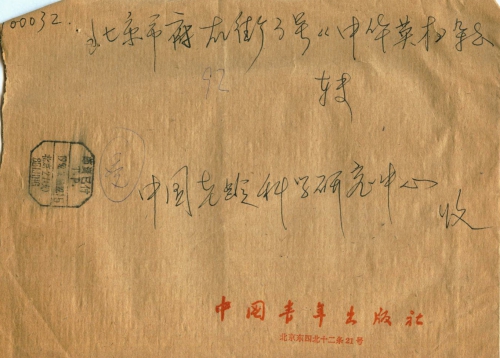 00032.
北京市府右街135号《中华英才》杂志
92
转
中国老龄科学研究中心
收
中国青年出版社
北京东四北十二条21号